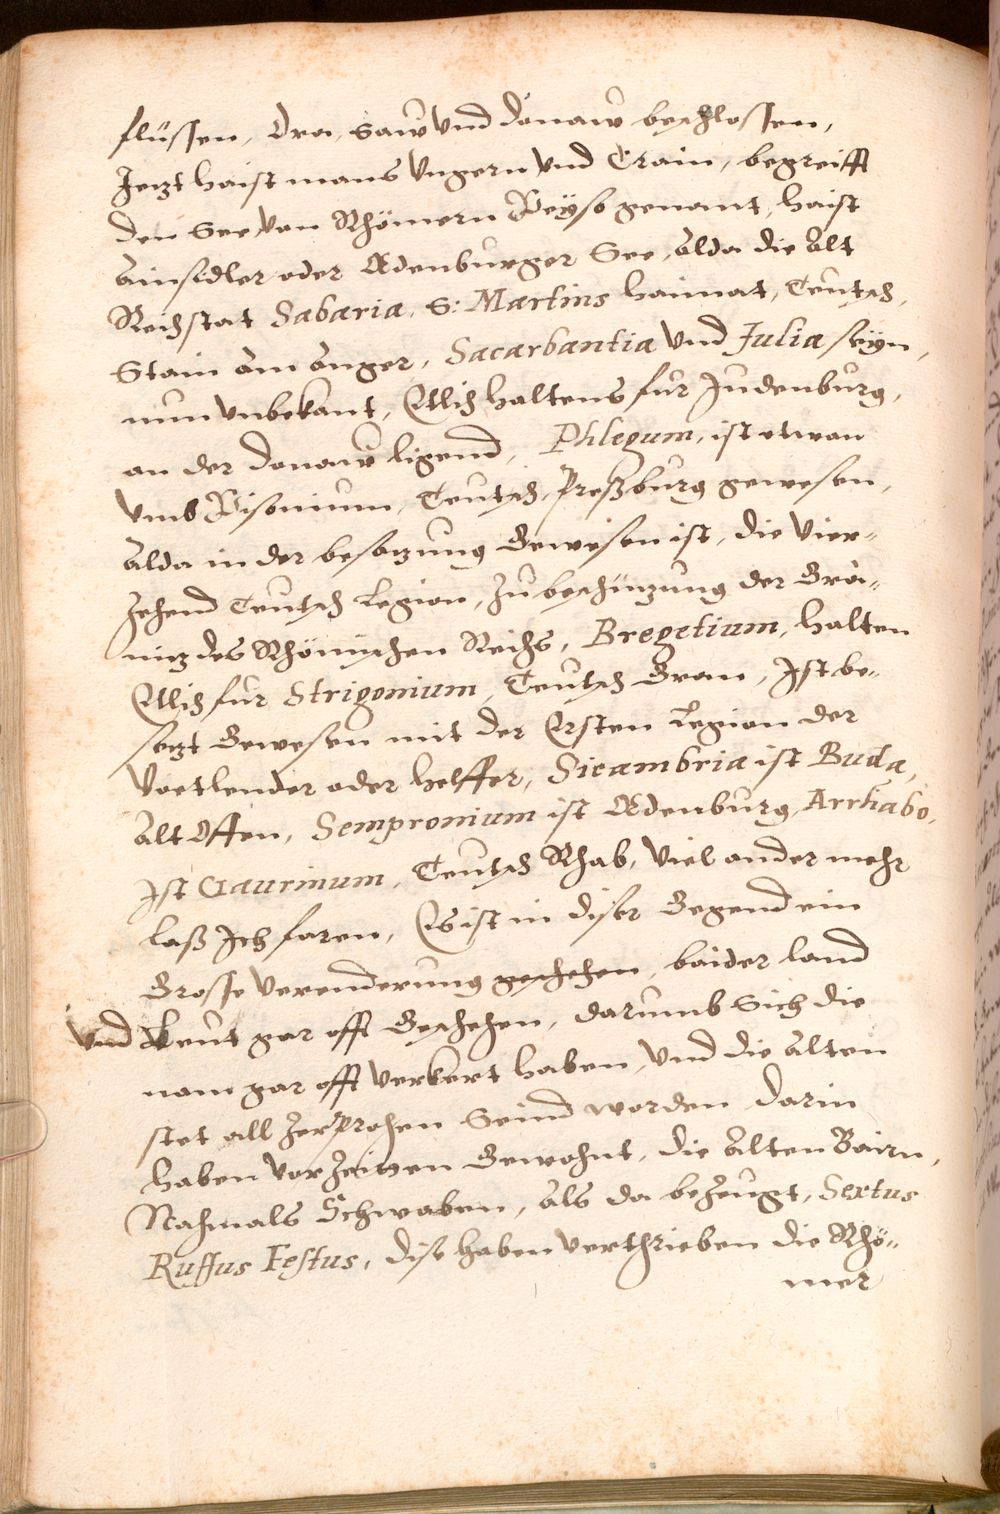 flüssen, Dra, Saw Vnd Donaw beschlossen,
Jezt haist mans Vngern Vnd Crain, begreifft
den See Von Rhömern Peyso genant, haist
Ainsidler oder Ödenburger See, Alda die Alt
Reichstat Sabaria, S: Martins haimat, Teutsch,
Stain Am Anger, Sacarbantia Vnd Julia seyn,
nun Vnbekant, Etlich haltens fur Judenburg,
an der Donaw ligend, Phlegum, ist etwan
Vmb Pisonium, Teutsch, Preßburg gewesen,
Alda in der besazung Gewesen ist, die Vier-
zehend Teutsch Legion, Zu beschüzung der Grä-
niz des Rhömischen Reichs, Bregetium, halten
Etlich fur Strigonium, Teutsch Gran, Jst be-
sezt Gewesen mit der Ersten Legion der
Voetlender oder helffer, Sicambria ist Buda,
Alt Offen, Sempronium ist Ödenburg, Arrhabo,
Jst Giaurinum, Teutsch Rhab, Viel ander mehr
laß Jch faren, Es ist in diser Gegend ein
Grosse Verenderung geschehen, baider land
Vnd Leut gar offt Geschehen, darumb Sich die
nam gar offt Verkert haben, Vnd die Alten
stet all Zerprochen Seind worden, Darin
haben Vor Zeiten Gewohnt, die Alten Bairn,
Nachmals Schwaben, Als da bezeugt, Sextus
Ruffus Festus, dise haben Verthrieben die Rhö-
mer